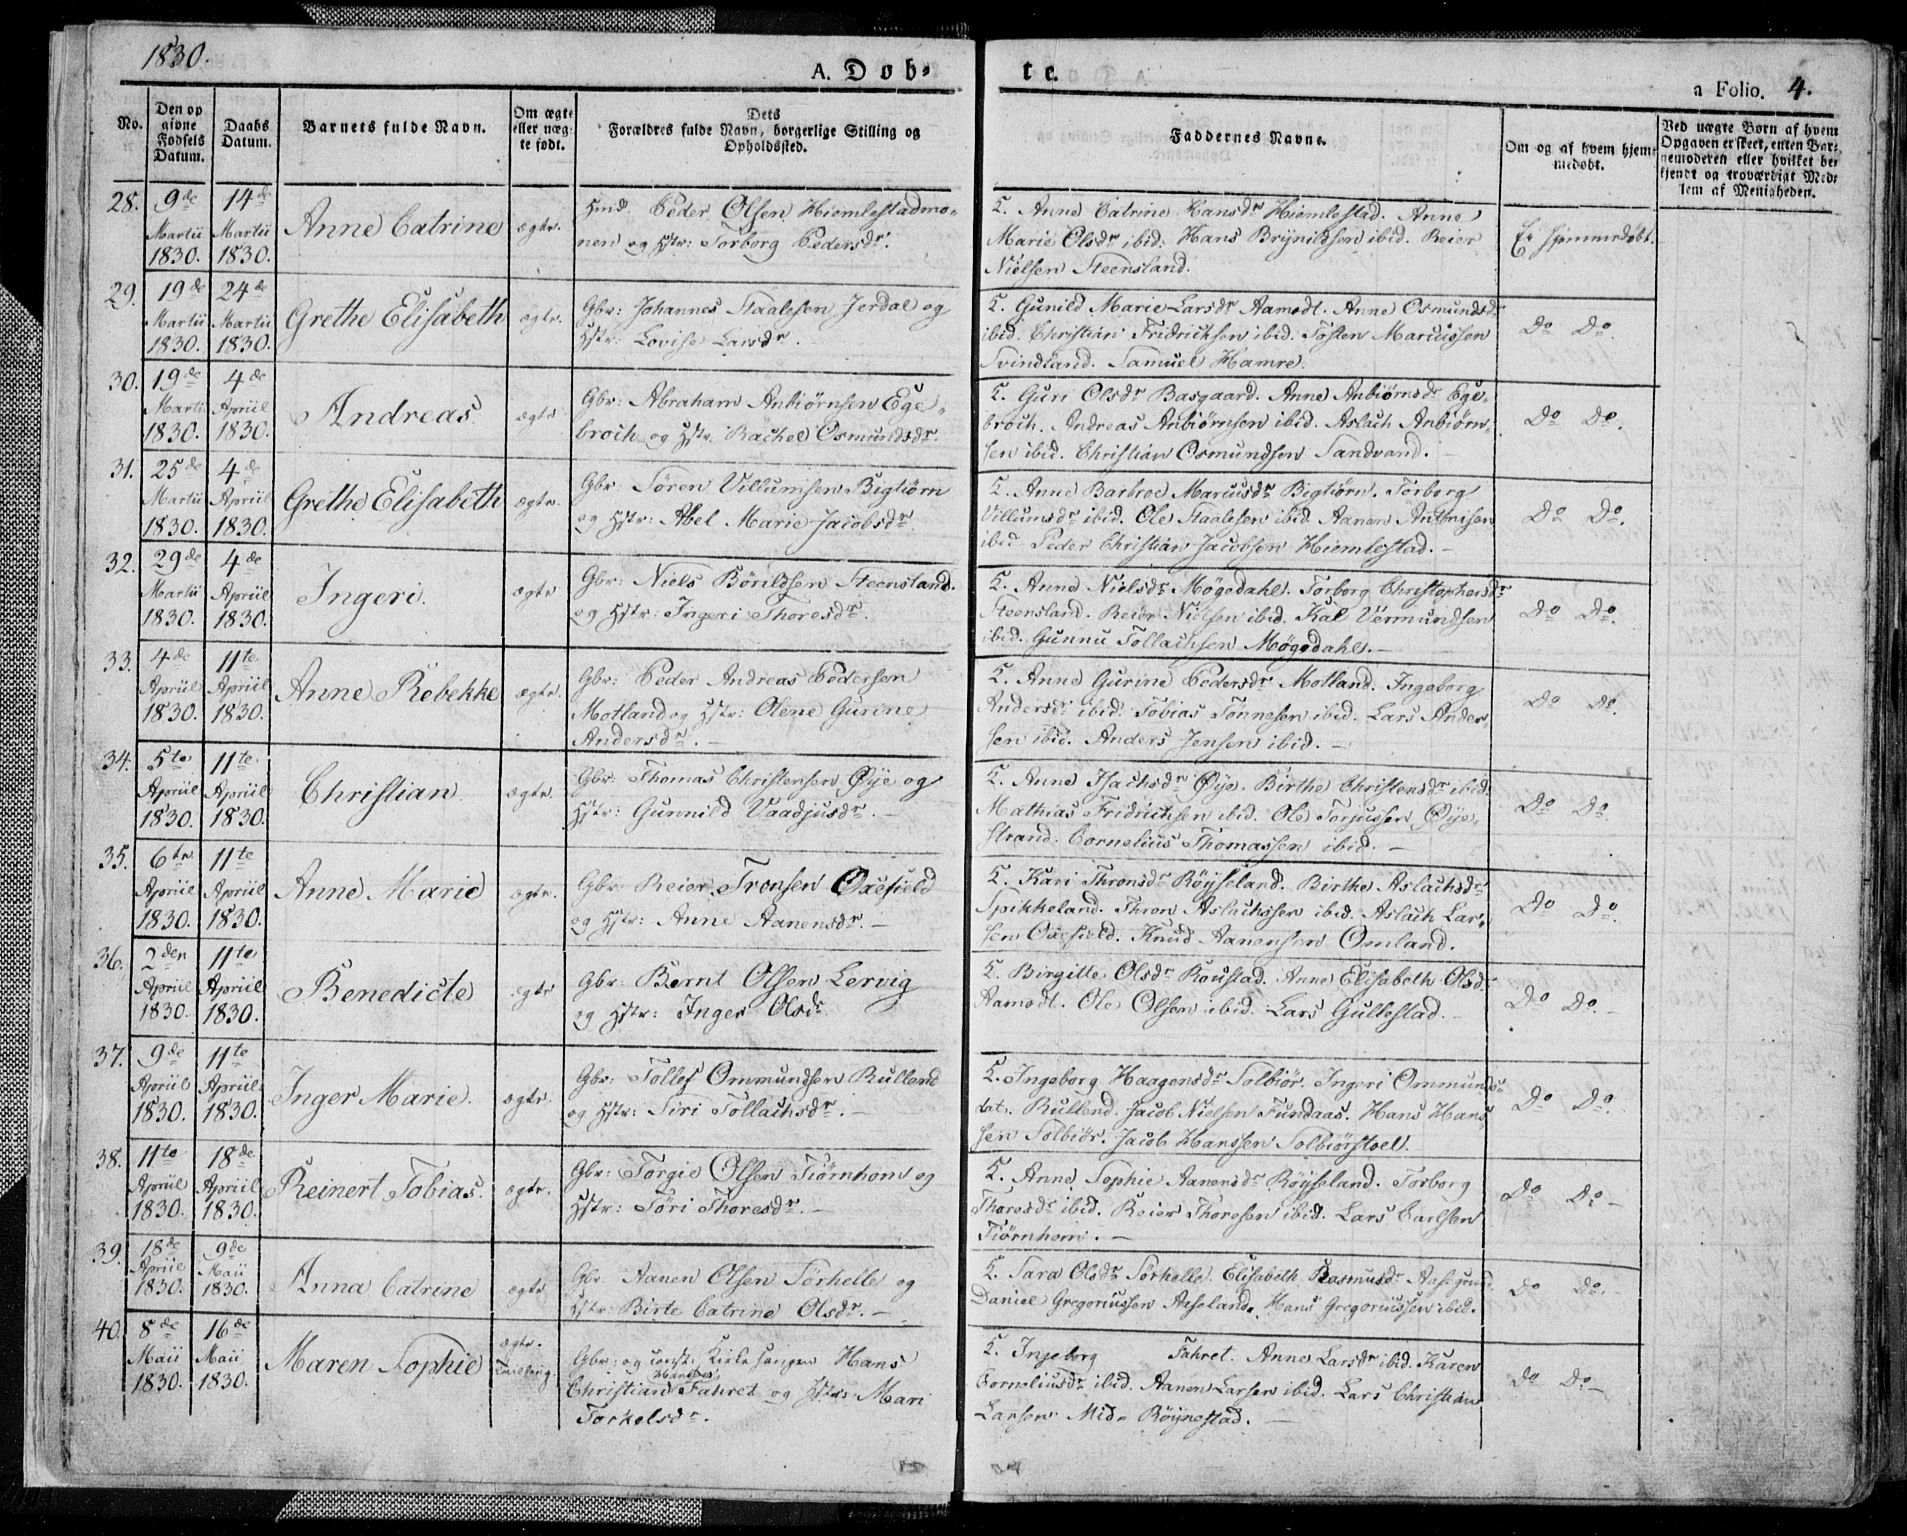 1830.
A. Døb-
te.
a Folio. 4.
No.
Den op
givne
Fødsels
Datum.
Daabs
Datum.
Barnets fulde Navn.
Om ægte
eller uæg-
te født.
Dets
Forældres fulde Navn, borgerlige Stilling og
Opholdssted.
Faddernes Navne.
Om og af hvem hjem-
medøbt.
Ved uægte Børn af hvem
Opgaven er skeet, enten Bar-
nemoderen eller hvilket be-
kjendt og troværdigt Med-
lem af Menigheden.
28.
9de
Martii
1830.
14de
Martii
1830.
Anne Catrine
ægte.
Hmd. Peder Olsen Hiemlestadmo-
nen og Hstr: Torborg Pedersdr.
T. Anne Catrine Hansdr Hiemlestad. Anne
Marie Olsdr ibid. Hans Brynildsen ibid. Reier
Nielsen Steensland.
Ei hjemmedøbt.
29.
19de
Martii
1830.
24de
Martii
1830.
Grethe Elisabeth
ægte.
Gbr: Johannes Staalesen Jerdal og
Hstr: Lovise Larsdr.
T. Gunild Marie Larsdr Aamodt. Anne Osmundsdr
ibid. Christian Fridrichsen ibid. Tosten Marcussen
Svindland. Samuel Hamre.
Do Do.
30.
19de
Martii
1830.
4de
Apriil
1830.
Andreas
ægte
Gbr: Abraham Anbiørnsen Ege-
broch og Hstr. Rachel Osmundsdr.
T. Guri Olsdr Basgaard. Anne Anbiørnsdr Ege-
broch. Andreas Anbiørnsen ibid. Aslach Anbiørn-
sen ibid. Christian Osmundsen Sandvand.
Do Do.
31.
25de
Martii
1830.
4de
Apriil
1830.
Grethe Elisabeth
ægte.
Gbr: Søren Villumsen Bigtiørn
og Hstr: Abel Marie Jacobsdr.
T. Anne Barbroe Marcusdr Bigtiørn. Torborg
Villumsdr ibid. Ole Staalesen ibid Aanen Antonisen
ibid Peder Christian Jacobsen Hiemlestad.
Do Do.
32.
29de
Martii
1830.
4de
Apriil
1830.
Ingeri.
ægte
Gbr: Niels Børildsen Steensland.
og Hstr: Ingeri Thoresdr.
T. Anne Nielsdr Møgedahl. Torborg Christophersdr
Steensland. Reier Nielsen ibid. Kal Vermundsen
ibid. Gunnu Tollachsen Møgedahl.
Do Do.
33.
4de
Apriil
1830.
11te
Apriil
1830.
Anne Rebekke
ægte.
Gbr: Peder Andreas Pedersen
Motland og Hstr: Olene Gurine
Andersdr.
T. Anne Gurine Pedersdr Motland. Ingeborg
Andersdr ibid. Tobias Tønnesen ibid. Lars Ander
sen ibid. Anders Jensen ibid.
Do Do.
34.
5te
Apriil
1830.
11te
Apriil
1830.
Christian
ægte.
Gbr: Thomas Christensen Øije og
Hstr: Gunnild Vaadjusdr.
T. Anne Isachsdr Øije. Birthe Christensdr ibid.
Mathias Fridrichsen ibid. Ole Torjussen Øije-
strand. Cornelius Thomassen ibid.
Do Do.
35.
6te
Apriil
1830.
11te
Apriil
1830.
Anne Marie
ægte.
Gbr: Reier Tronsen Qaefield
og Hstr: Anne Aanensdr.
T. Kari Thronsdr Røyseland. Birthe Aslachsdr
Spikkeland. Thron Aslachssen ibid. Aslach Lar-
sen Qaefield. Knud Aanensen Omland.
Do Do.
36.
2den
Apriil
1830.
11te
Apriil
1830.
Benedicte
ægte
Gbr: Bernt Olsen Lervig
og Hstr: Inger Olsdr
T. Birgitte Olsdr Roustad. Anne Elisabeth Olsdr
Aamodt. Ole Olsen ibid. Lars Gullestad.
Do Do.
37.
9de
Apriil
1830.
11te
Apriil
1830.
Inger Marie.
ægte.
Gbr: Tollef Ommundsen Rulland
og Hstr: Siri Tollachsdr.
T. Ingeborg Haagensdr Solbiør. Ingeri Ommunds-
dat. Rullend. Jacob Nielsen Fundaas. Hans Hans-
sen Solbiør. Jacob Hanssen Solbiørstoel.
Do Do.
38.
11te
Apriil
1830.
18de
Apriil
1830.
Reinert Tobias.
ægte.
Gbr: Torgie Olsen Tiørnhom og
Hstr: Tøri Thoresdr.
T. Anne Sophie Aanensdr Røyseland. Torborg
Thoresdr ibid. Reier Thoresen ibid. Lars Carlsen
Tiørnhom.
Do Do.
39.
18de
Apriil
1830.
9de
Maii
1830.
Anna Catrine
ægte
Gbr. Aanen Olsen Sørhelle og
Hstr: Birte Catrine Olsdr.
T. Sara Olsdr Sørhelle. Elisabeth Rasmusdr
Daniel Gregoriussen Aaseland. Hans Gregoriussen ibid.
Do Do.
40.
8de
Maii
1830.
16de
Maii
1830.
Maren Sophie
ægte.
Tvilling.
Gbr: og const: Kirkesanger Hans
Christian Hansen Fahret og Hstr: Mari
Torkelsdr.
T. Ingeborg Fahret. Anne Larsdr ibid. Karen
Corneliusdr ibid. Aanen Larsen ibid. Lars Christian
Larsen Mid-Røynestad.
Do Do